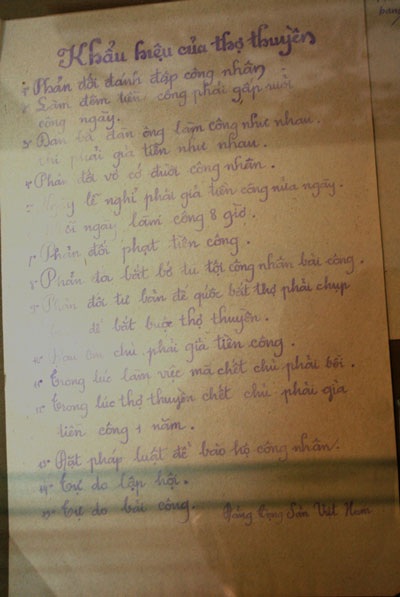 Khẩu hiệu của thợ thuyền
1- Phản đối đánh đập công nhân
2- Làm đêm tiền công phải gấp rưỡi
công ngày.
3- Đàn bà đàn ông làm công như nhau.
thì phải giả tiền như nhau.
4- Phản đối vô cớ đuổi công nhân.
Ngày lễ nghỉ phải giả tiền công nửa ngày.
Mỗi ngày làm công 8 giờ.
Phản đối phạt tiền công.
Phản đối bắt bớ tù tội công nhân bãi công.
Phản đối tư bản đế quốc bắt thợ phải chụp
để bắt buộc thợ thuyền.
Đau ốm chủ phải giả tiền công.
Trong lúc làm việc mà chết chủ phải bồi.
Trong lúc thợ thuyền chết chủ phải giả
tiền công 1 năm.
Đặt pháp luật để bảo hộ công nhân.
Tự do lập hội.
Tự do bãi công. Đảng Cộng Sản Việt Nam